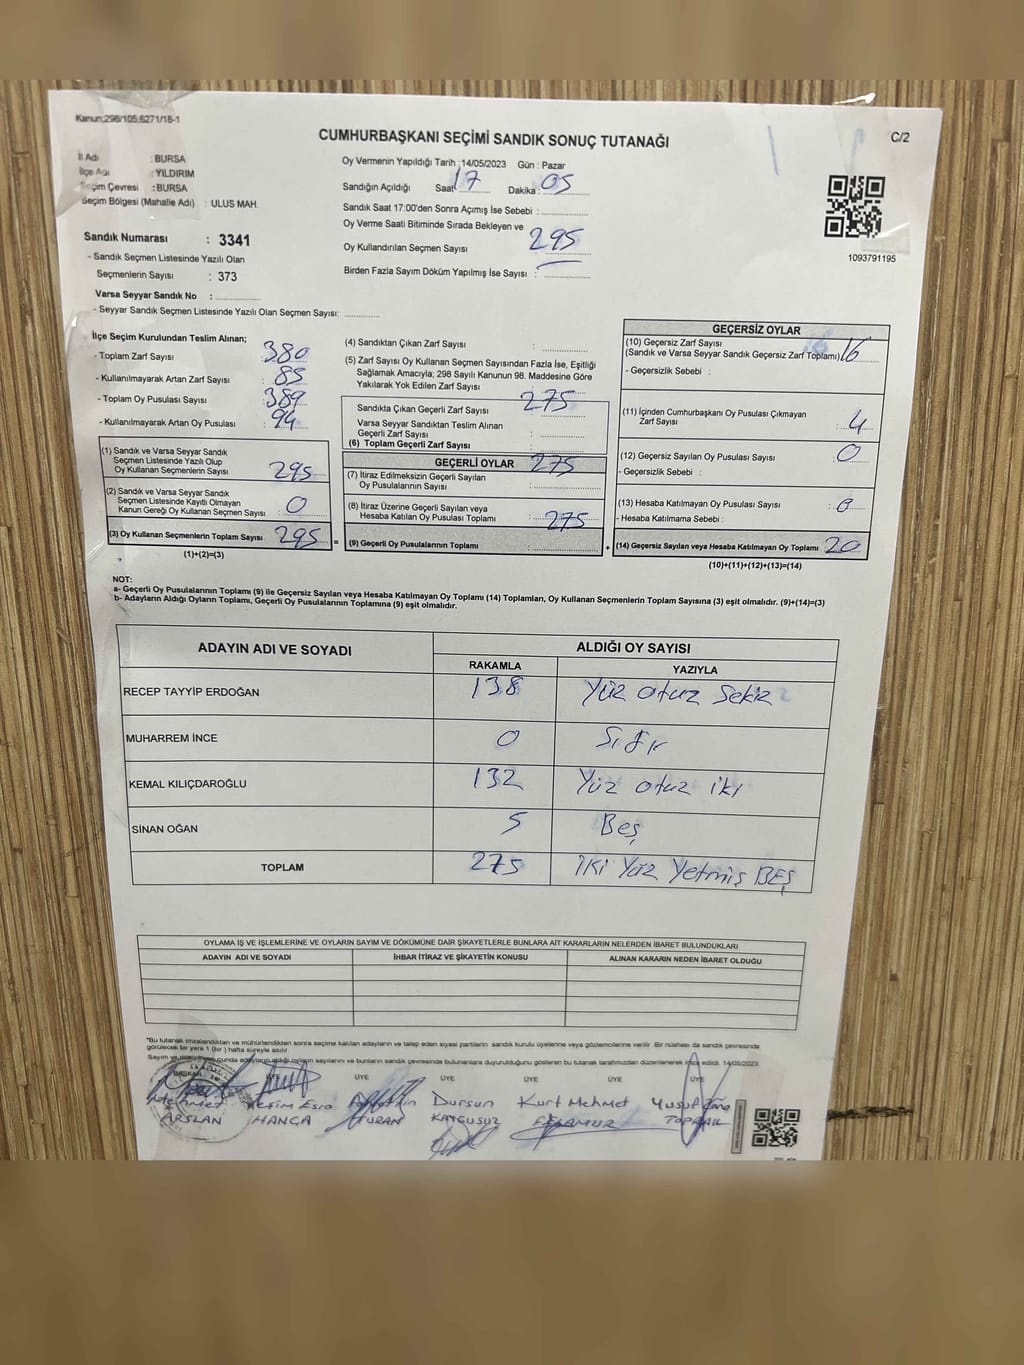 Kanun;298/105;6271/18-1
CUMHURBAŞKANI SEÇİMİ SANDIK SONUÇ TUTANAĞI
C/2
İl Adı : BURSA
İlçe Adı : YILDIRIM
Seçim Çevresi : BURSA
Seçim Bölgesi (Mahalle Adı) : ULUS MAH.
Sandık Numarası : 3341
- Sandık Seçmen Listesinde Yazılı Olan
Seçmenlerin Sayısı : 373
Varsa Seyyar Sandık No :
- Seyyar Sandık Seçmen Listesinde Yazılı Olan Seçmen Sayısı:
Oy Vermenin Yapıldığı Tarih :14/05/2023 Gün : Pazar
Sandığın Açıldığı Saat: 17 Dakika : 05
Sandık Saat 17:00'den Sonra Açımış İse Sebebi :
Oy Verme Saati Bitiminde Sırada Bekleyen ve
Oy Kullandırılan Seçmen Sayısı : 295
Birden Fazla Sayım Döküm Yapılmış İse Sayısı :
1093791195
İlçe Seçim Kurulundan Teslim Alınan;
- Toplam Zarf Sayısı : 380
- Kullanılmayarak Artan Zarf Sayısı : 85
- Toplam Oy Pusulası Sayısı : 389
- Kullanılmayarak Artan Oy Pusulası : 94
(1) Sandık ve Varsa Seyyar Sandık
Seçmen Listesinde Yazılı Olup
Oy Kullanan Seçmenlerin Sayısı : 295
(2) Sandık ve Varsa Seyyar Sandık
Seçmen Listesinde Kayıtlı Olmayan
Kanun Gereği Oy Kullanan Seçmen Sayısı : 0
(3) Oy Kullanan Seçmenlerin Toplam Sayısı : 295 =
(1)+(2)=(3)
(4) Sandıktan Çıkan Zarf Sayısı :
(5) Zarf Sayısı Oy Kullanan Seçmen Sayısından Fazla İse, Eşitliği
Sağlamak Amacıyla; 298 Sayılı Kanunun 98. Maddesine Göre
Yakılarak Yok Edilen Zarf Sayısı :
275
Sandıkta Çıkan Geçerli Zarf Sayısı :
Varsa Seyyar Sandıktan Teslim Alınan
Geçerli Zarf Sayısı :
(6) Toplam Geçerli Zarf Sayısı :
GEÇERLİ OYLAR
275
(7) İtiraz Edilmeksizin Geçerli Sayılan
Oy Pusulalarının Sayısı :
(8) İtiraz Üzerine Geçerli Sayılan veya
Hesaba Katılan Oy Pusulası Toplamı :
275
(9) Geçerli Oy Pusulalarının Toplamı : +
GEÇERSİZ OYLAR
(10) Geçersiz Zarf Sayısı
(Sandık ve Varsa Seyyar Sandık Geçersiz Zarf Toplamı) 16
- Geçersizlik Sebebi :
(11) İçinden Cumhurbaşkanı Oy Pusulası Çıkmayan
Zarf Sayısı : 4
(12) Geçersiz Sayılan Oy Pusulası Sayısı : 0
- Geçersizlik Sebebi :
(13) Hesaba Katılmayan Oy Pusulası Sayısı : 0
- Hesaba Katılmama Sebebi :
(14) Geçersiz Sayılan veya Hesaba Katılmayan Oy Toplamı : 20
(10)+(11)+(12)+(13)=(14)
NOT:
a- Geçerli Oy Pusulalarının Toplamı (9) ile Geçersiz Sayılan veya Hesaba Katılmayan Oy Toplamı (14) Toplamları, Oy Kullanan Seçmenlerin Toplam Sayısına (3) eşit olmalıdır. (9)+(14)=(3)
b- Adayların Aldığı Oyların Toplamı, Geçerli Oy Pusulalarının Toplamına (9) eşit olmalıdır.
ADAYIN ADI VE SOYADI
ALDIĞI OY SAYISI
RAKAMLA YAZIYLA
RECEP TAYYİP ERDOĞAN 138 Yüz otuz Sekiz
MUHARREM İNCE 0 Sıfır
KEMAL KILIÇDAROĞLU 132 Yüz otuz iki
SİNAN OĞAN 5 Beş
TOPLAM 275 İKİ Yüz Yetmiş BEŞ
OYLAMA İŞ VE İŞLEMLERİNE VE OYLARIN SAYIM VE DÖKÜMÜNE DAİR ŞİKAYETLERLE BUNLARA AİT KARARLARIN NELERDEN İBARET BULUNDUKLARI
ADAYIN ADI VE SOYADI İHBAR İTİRAZ VE ŞİKAYETİN KONUSU ALINAN KARARIN NEDEN İBARET OLDUĞU
"Bu tutanak imzalandıktan ve mühürlendikten sonra seçime katılan adayların ve talep eden siyasi partilerin sandık kurulu üyelerine veya gözlemcilerine verilir. Bir nüshası da sandık çevresinde
görülecek bir yere 1 (bir) hafta süreyle asılır.
Sayım ve adayların aldığı oyların sayılarını ve bunların sandık çevresinde bulunanlara duyurulduğunu gösteren bu tutanak tarafımızdan düzenlenerek imza edildi. 14/05/2023
BAŞKAN ÜYE ÜYE ÜYE ÜYE ÜYE
Mehmet Esra Dursun Kurt Mehmet Yusuf
ARSLAN HANCA TURAN KAYGUSUZ TOPRAK